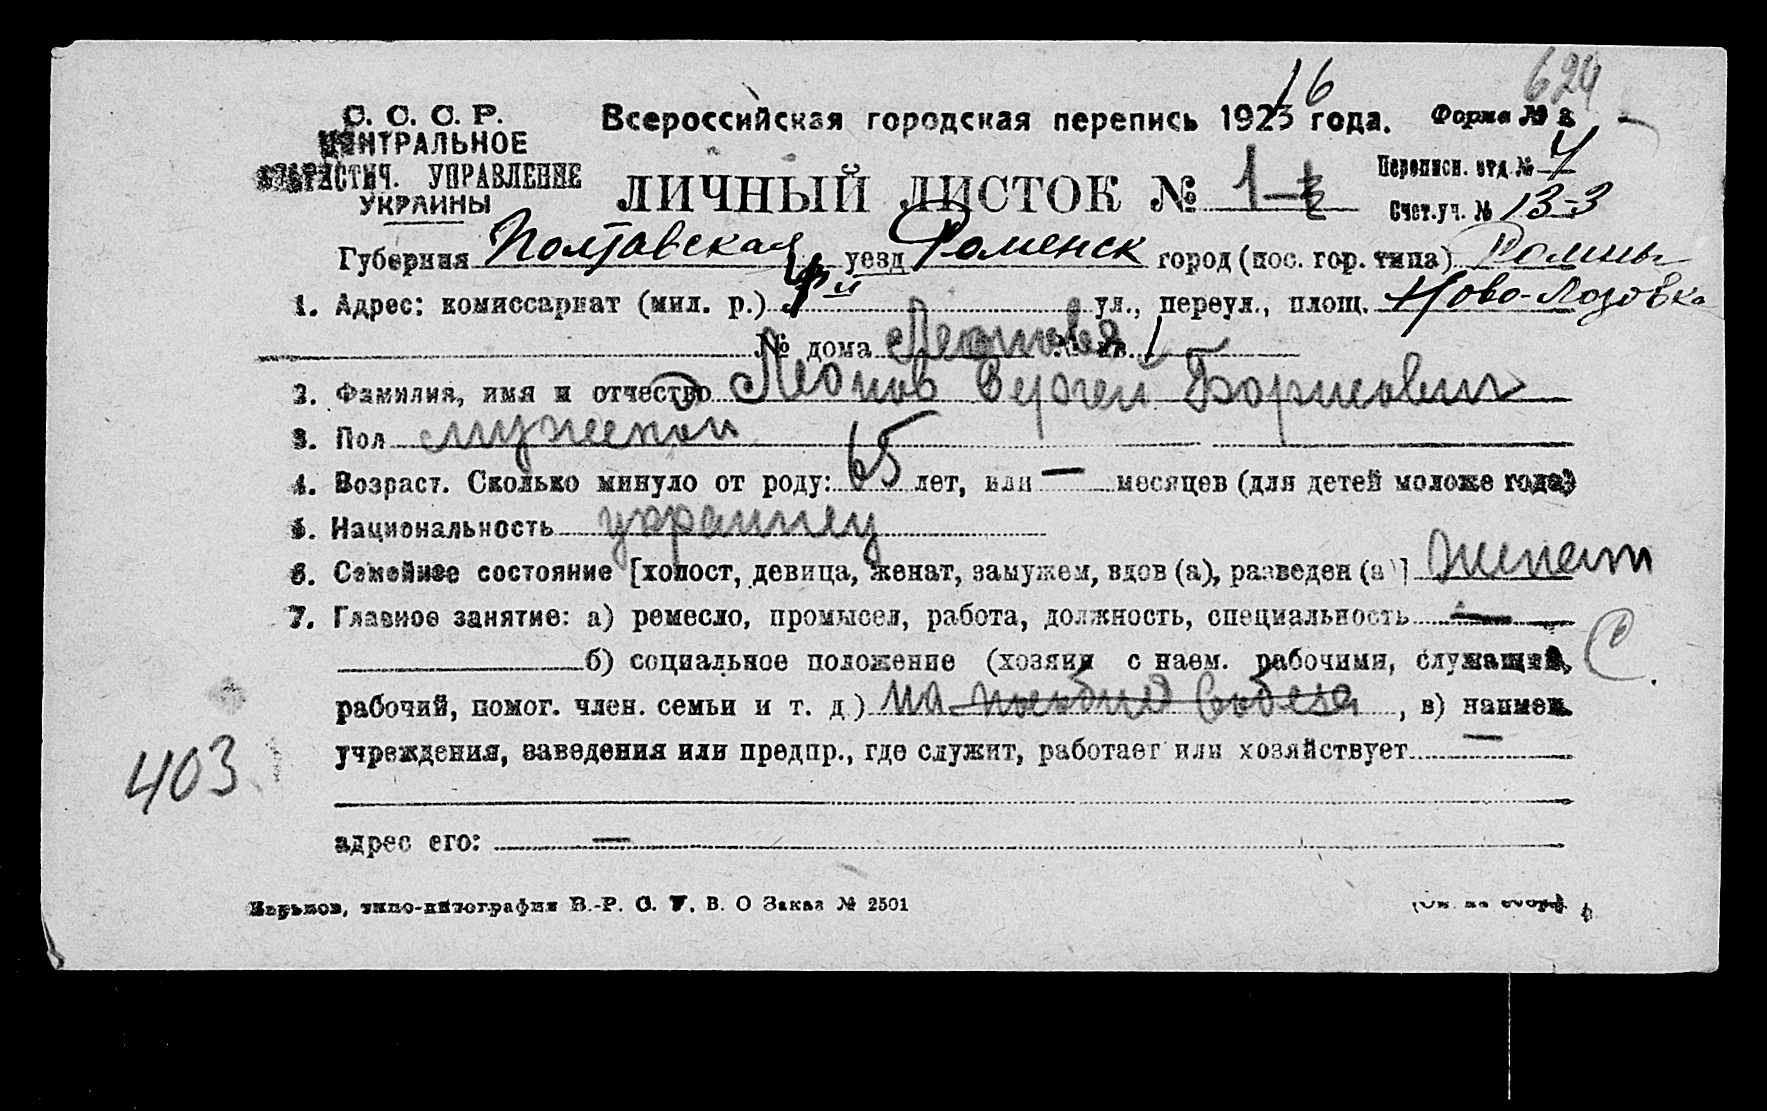 624
16
С. С. С. Р. Всероссийская городская перепись 1923 года. Форма № 2
ЦЕНТРАЛЬНОЕ
СТАТИСТИЧ. УПРАВЛЕНИЕ
УКРАИНЫ
Переписн. отд. № 4
ЛИЧНЫЙ ЛИСТОК № 1-
Счет.уч. № 13-3
Губерния Полтавская уезд Роменск город (пос. гор. типа) Ромны
1. Адрес: комиссариат (мил. р.) ул., переул., площ. Ново-Лозовка
№ дома Леонова № кв. 1
2. Фамилия, имя и отчество Леонов Сергей Борисович
3. Пол мужской
4. Возраст. Сколько минуло от роду: 65 лет, или — месяцев (для детей моложе года)
5. Национальность украинец
6. Семейное состояние [холост, девица, женат, замужем, вдов (а), разведен (а)] женат
7. Главное занятие: а) ремесло, промысел, работа, должность, специальность —
б) социальное положение (хозяин с наем. рабочими, служащий,
рабочий, помог. член. семьи и т. д.) на собеса, в) наимен.
учреждения, заведения или предпр., где служит, работает или хозяйствует —
403
адрес его: —
Харьков, типо-литография В.-Р. С. У. В. О Заказ № 2501